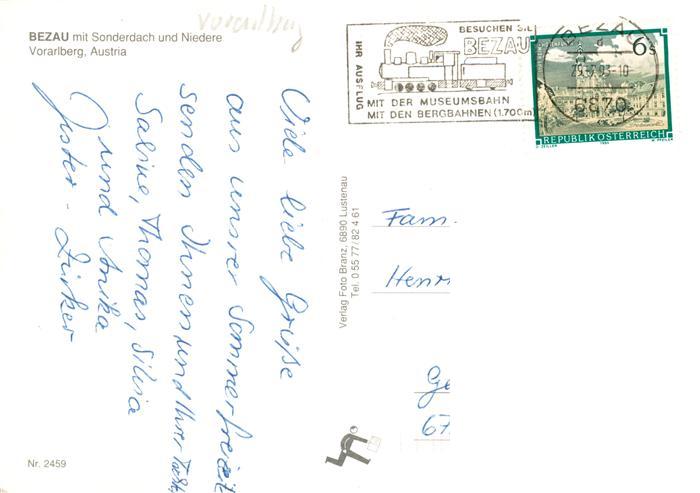 BEZAU mit Sonderdach und Niedere
Vorarlberg, Austria
Vorarlberg
BESUCHEN SIE
BEZAU
IHR AUSFLUG
MIT DER MUSEUMSBAHN
MIT DEN BERGBAHNEN (1.700m)
BEZAU
6870
6s
REPUBLIK ÖSTERREICH
Viele liebe Grüße
aus unsrer Sommerfreizeit
senden Ihnen und Ihrer
Sabine, Thomas, Silvia
und Anika
Verlag Foto Branz, 6890 Lustenau
Tel. 0 55 77/82 4 61
Fam.
Henr
Ge
67
Nr. 2459